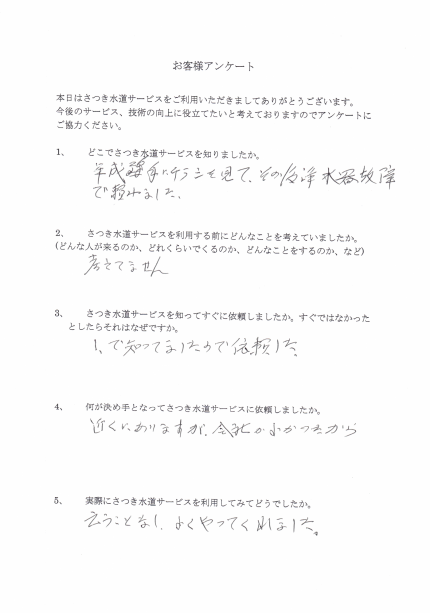 お客様アンケート
本日はさつき水道サービスをご利用いただきましてありがとうございます。
今後のサービス、技術の向上に役立てたいと考えておりますのでアンケートに
ご協力ください。
1、 どこでさつき水道サービスを知りましたか。
平成 年にチラシを見て、その後浄水器故障
で頼みました、
2、 さつき水道サービスを利用する前にどんなことを考えていましたか。
(どんな人が来るのか、どれくらいでくるのか、どんなことをするのか、など)
考えてません
3、 さつき水道サービスを知ってすぐに依頼しましたか。すぐではなかった
としたらそれはなぜですか。
1、で知ってましたので依頼した、
4、 何が決め手となってさつき水道サービスに依頼しましたか。
近くにありますが、会社がよかったから
5、 実際にさつき水道サービスを利用してみてどうでしたか。
云うことなし、よくやってくれました。